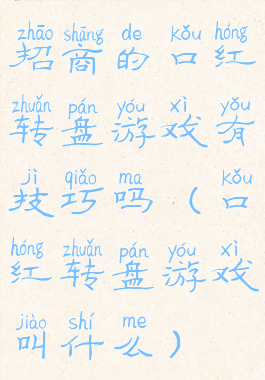 zhāo shāng de kǒu hóng
招商的口红
zhuǎn pán yóu xì yǒu
转盘游戏有
jì qiǎo ma kǒu
技巧吗（口
hóng zhuǎn pán yóu xì
红转盘游戏
jiào shí me
叫什么）